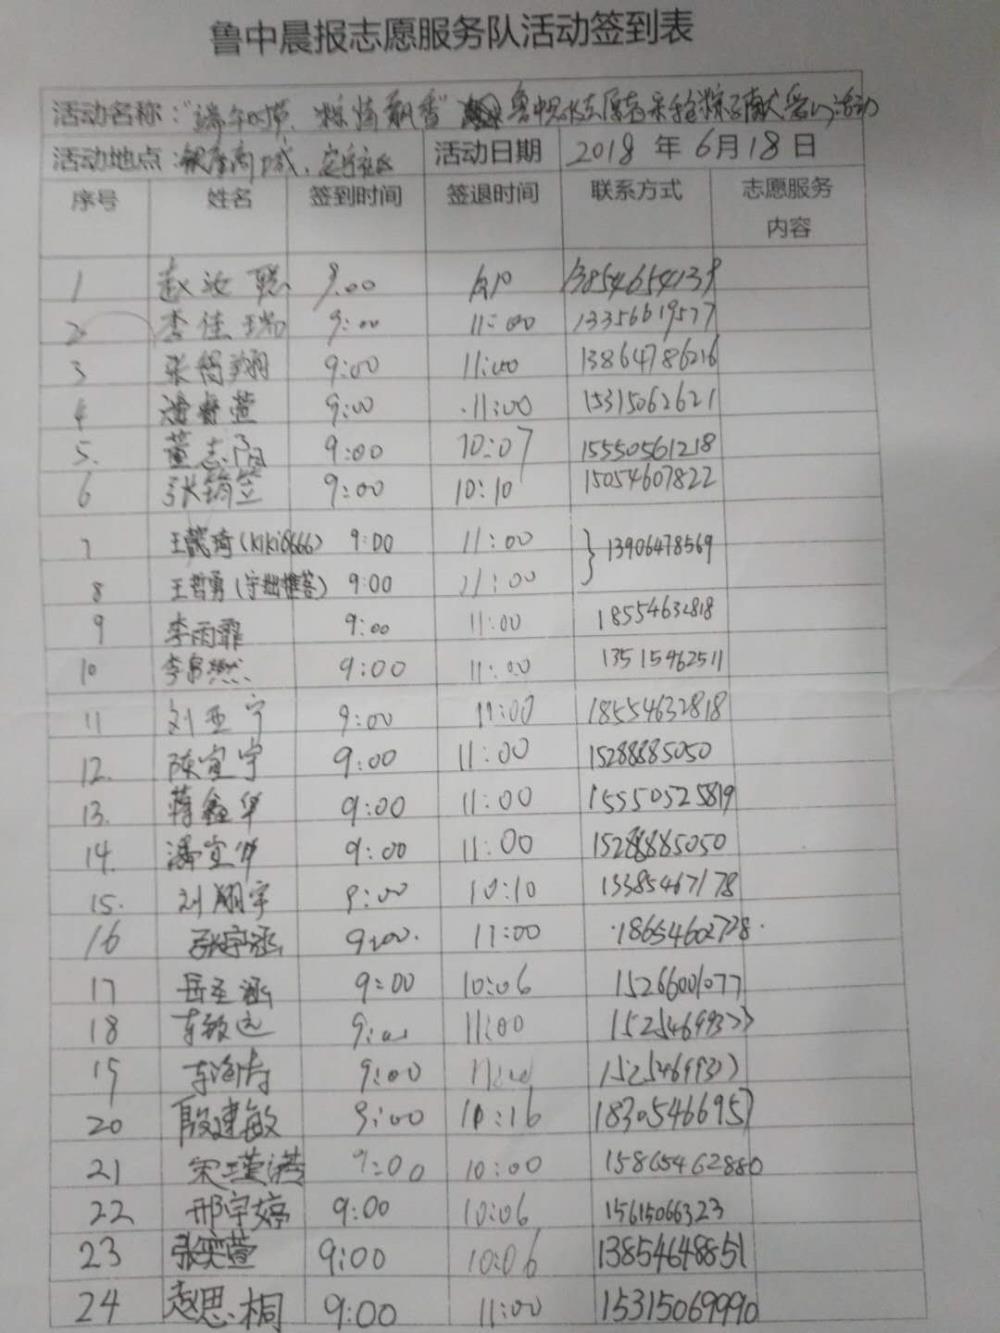 鲁中晨报志愿服务队活动签到表
活动名称：“端午时节、粽情飘香” 鲁中晨报志愿者 粽子献爱心活动
活动地点：银座商城、 社区 活动日期 2018 年 6月 18 日
序号 姓名 签到时间 签退时间 联系方式 志愿服务内容
1 赵汝聪 9:00 13854654139
2 李佳瑞 9:00 11:00 13356619577
3 张 翔 9:00 11:00 13864786216
4 潘睿萱 9:00 11:00 15315062621
5. 董志 9:00 10:07 15550561218
6 张 9:00 10:10 15054607822
7 王 琦(kiki8666) 9:00 11:00 } 13906478569
8 王哲勇(守拙推答) 9:00 11:00
9 李雨霏 9:00 11:00 18554632818
10 李 燃 9:00 11:00 13515462511
11 刘亚宁 9:00 11:00 18554632818
12. 陈宣宇 9:00 11:00 15288885050
13. 蒋鑫华 9:00 11:00 15550525819
14. 潘宣伊 9:00 11:00 15288885050
15. 刘翔宇 9:00 10:10 13385467178
16 张宇涵 9:00. 11:00 18654602728.
17 岳圣涵 9:00 10:06 15266001077
18 敏 9:00 11:00
19 9:00 11:00
20 殷建敏 9:00 10:16 18305466957
21 宋瑾潞 9:00 10:00 15865462880
22 邢宇婷 9:00 10:06 15615066323
23 张奕萱 9:00 10:06 13854648851
24 赵思桐 9:00 11:00 15315069990